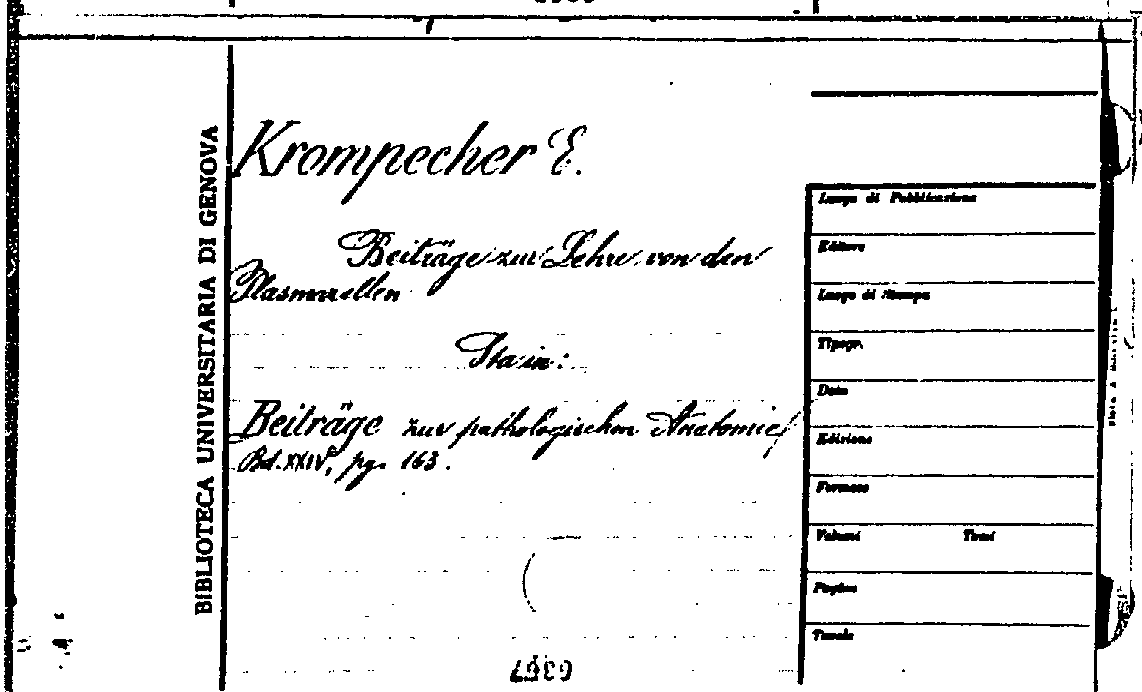 BIBLIOTECA UNIVERSITARIA DI GENOVA
Krompecher E.
Beiträge zur Lehre von den
Plasmazellen
Sta in:
Beiträge zur pathologischen Anatomie,
Bd. XXIV, pg. 163.
Luogo di Pubblicazione
Editore
Luogo di Stampa
Tipogr.
Data
Edizione
Formato
Volumi Tomi
Pagine
Tavole